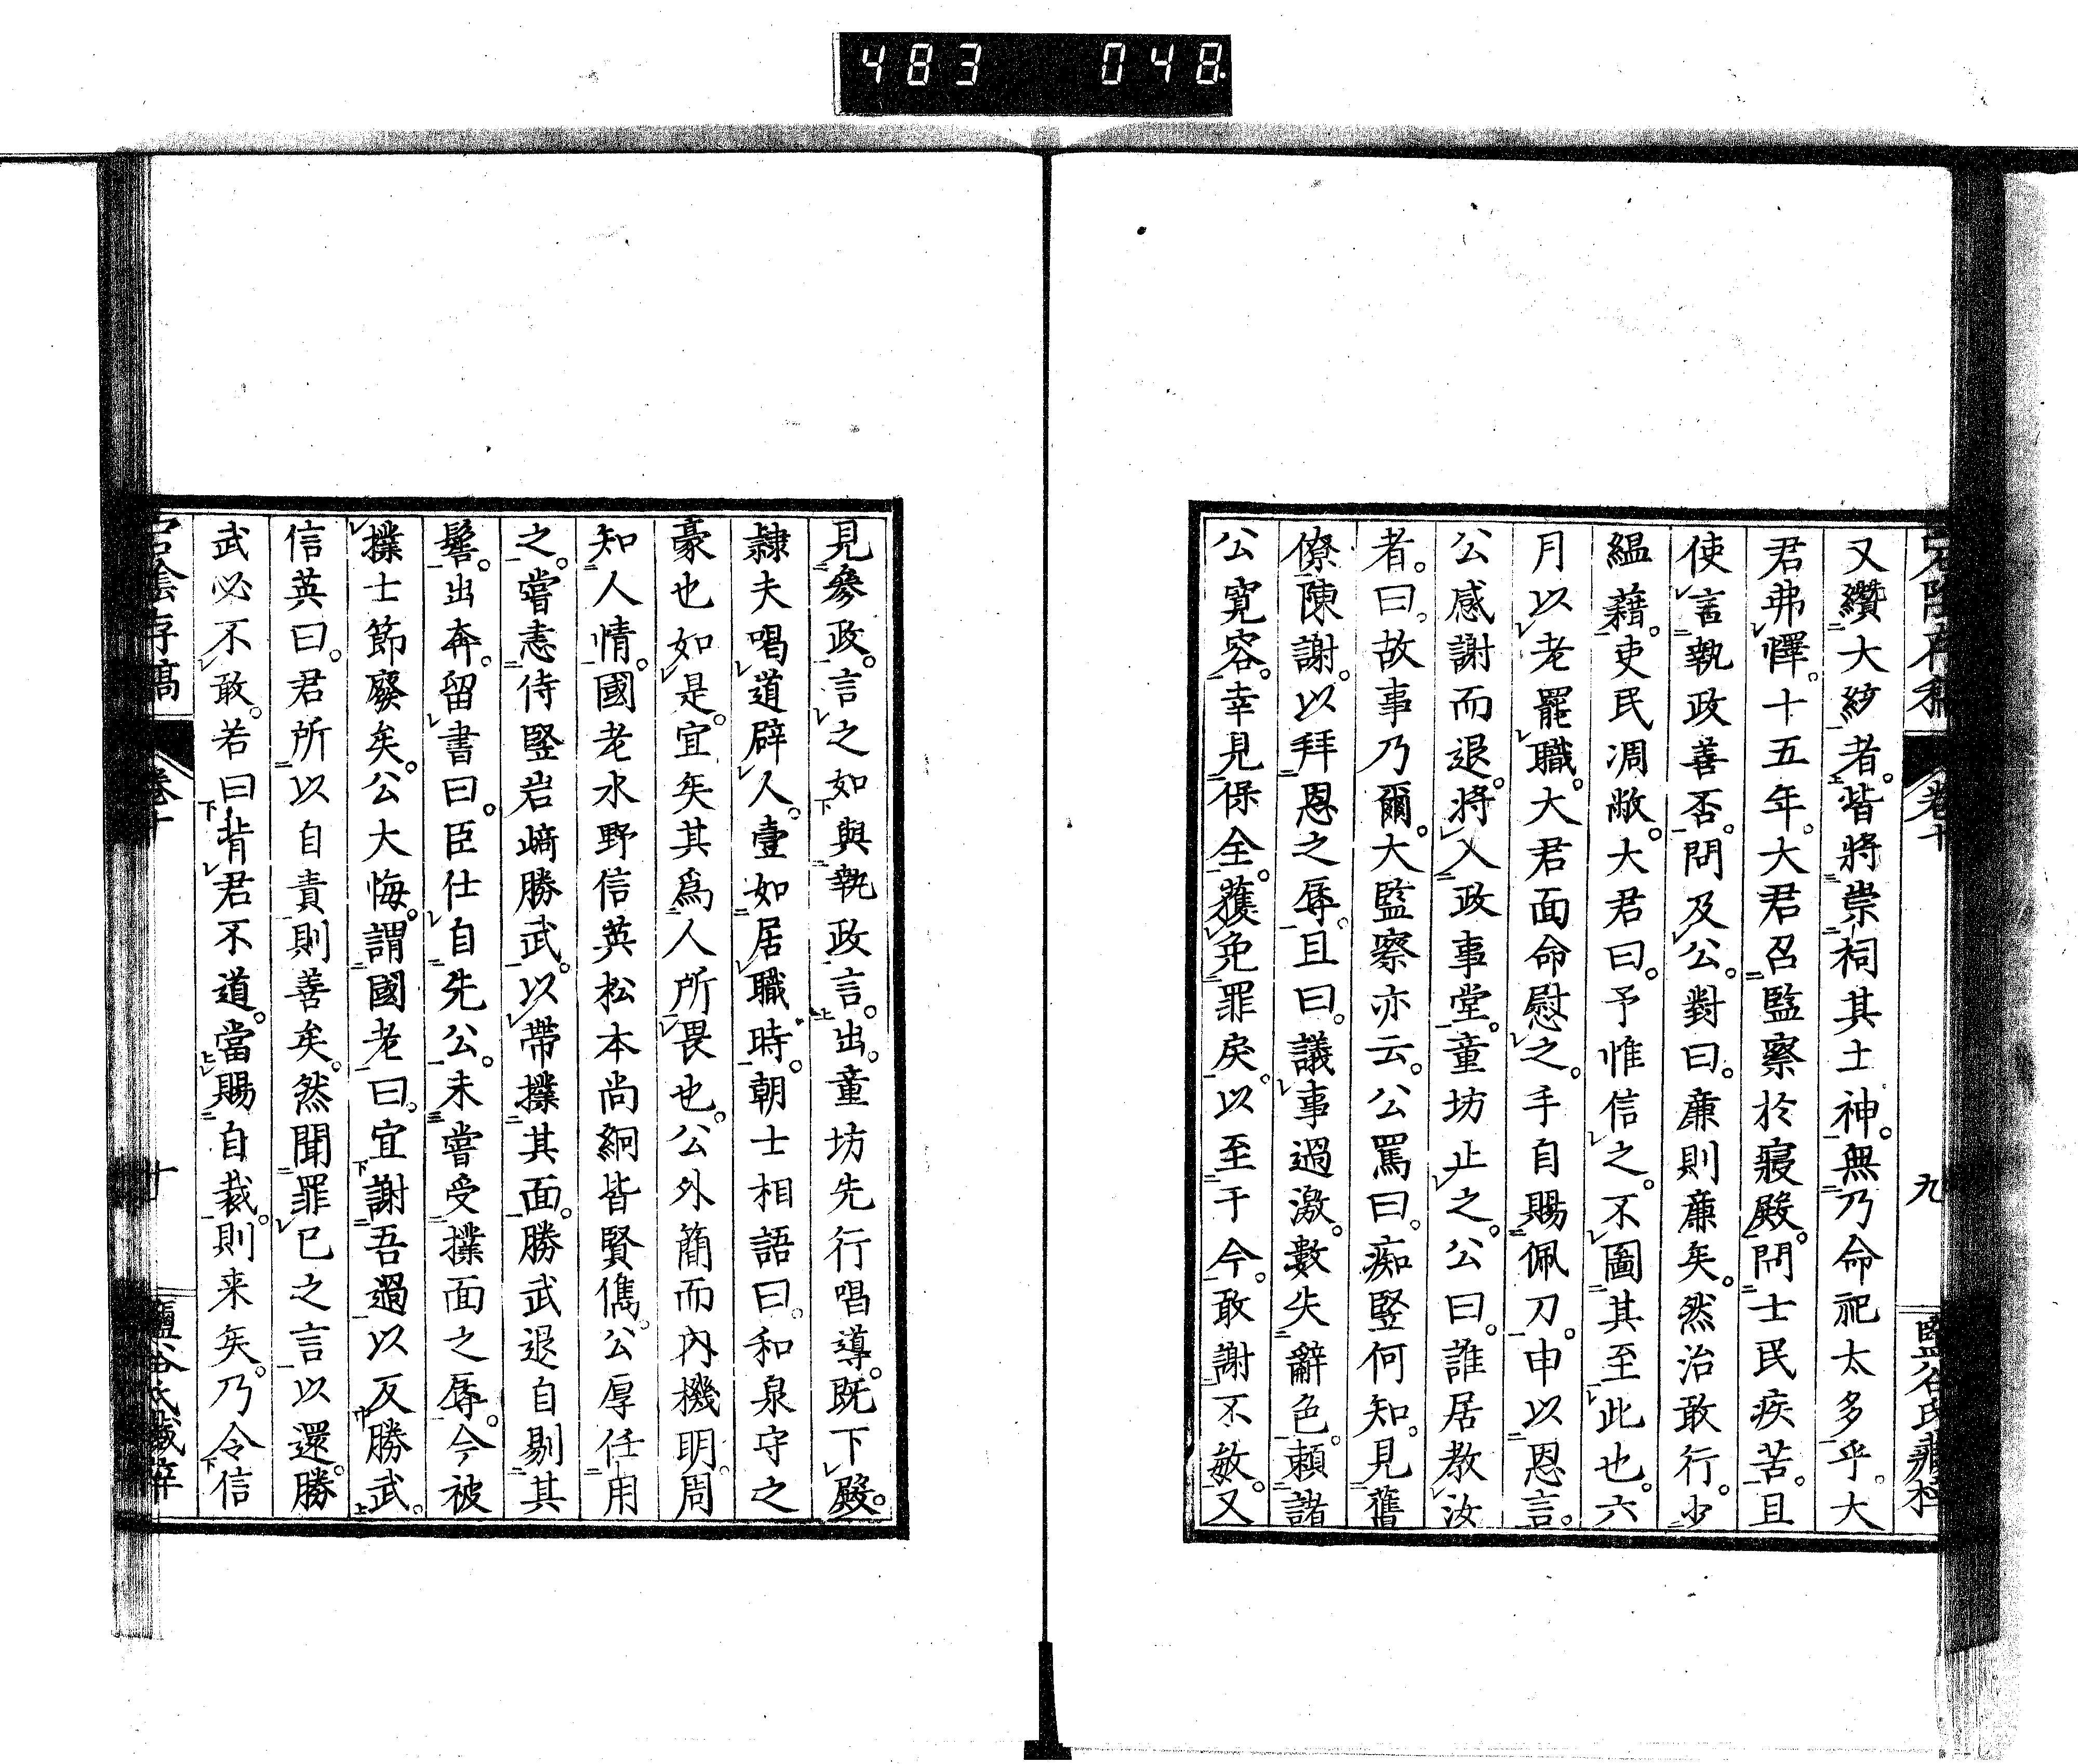 483 048
宕陰存稿 卷十 九 鹽谷氏藏梓
又纘大紗者。皆將祟祠其土神。無乃命祀太多乎。大
君弗懌。十五年。大君召監察於寢殿。問士民疾苦。且
使言執政善否。問及公。對曰。廉則廉矣。然治敢行。少
縕藉。吏民凋敝。大君曰。予惟信之。不圖其至此也。六
月以老罷職。大君面命慰之。手自賜佩刀。申以恩言。
公感謝而退。將入政事堂。童坊止之。公曰。誰居教汝
者。曰。故事乃爾。大監察亦云。公罵曰。痴豎何知。見舊
僚陳謝。以拜恩之辱。且曰。議事過激。數失辭色。賴諸
公寬容。幸見保全。獲免罪戾。以至于今。敢謝不敏。又
見參政。言之如與執政言。出。童坊先行唱導。既下殿。
隷夫喝道辟人。壹如居職時。朝士相語曰。和泉守之
豪也如是。宜矣其爲人所畏也。公外簡而內機明。周
知人情。國老水野信英松本尚絅皆賢儁。公厚任用
之。嘗恚侍豎岩﨑勝武。以帶撲其面。勝武退自剔其
髻。出奔。留書曰。臣仕自先公。未嘗受撲面之辱。今被
撲士節廢矣。公大悔。謂國老曰。宜謝吾過以反勝武。
信英曰。君所以自責則善矣。然聞罪已之言以還。勝
武必不敢。若曰背君不道。當賜自裁。則来矣。乃令信
宕陰存稿 卷十 十 鹽谷氏藏梓